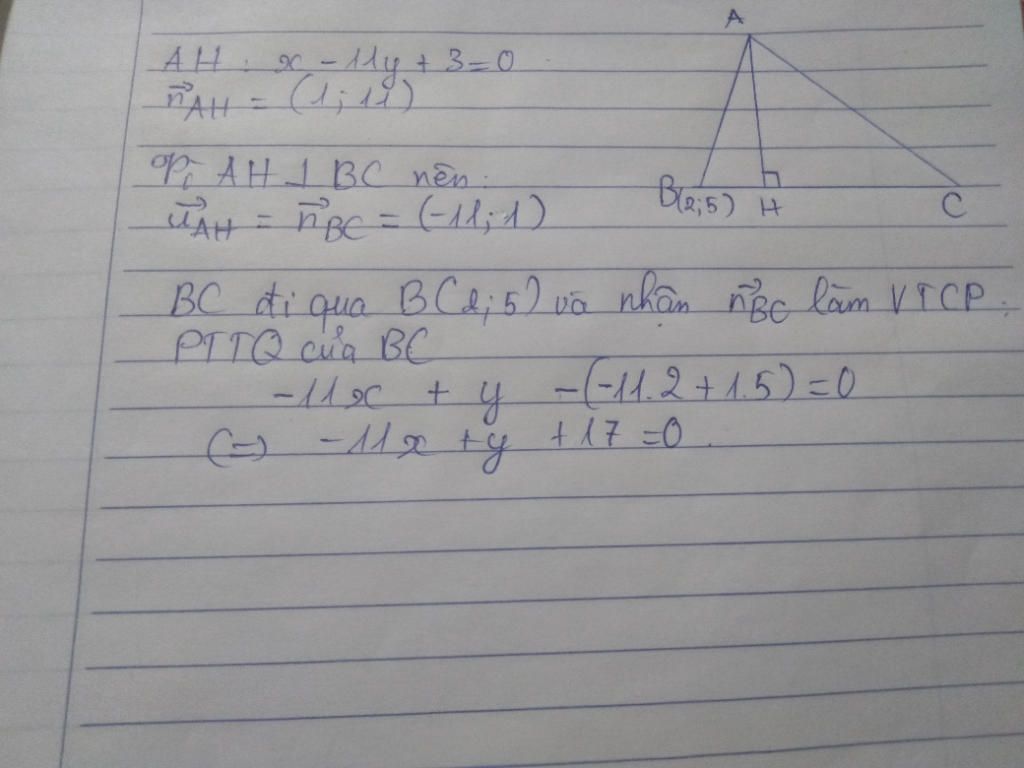 A
AH : x - 11y + 3 = 0
n⃗AH = (1; 11)
Vì AH ⊥ BC nên:
u⃗AH = n⃗BC = (-11; 1)
B(2;5) H C
BC đi qua B(2; 5) và nhận n⃗BC làm VTCP:
PTTQ của BC
-11x + y -(-11.2 + 1.5) = 0
(=) -11x + y + 17 = 0.